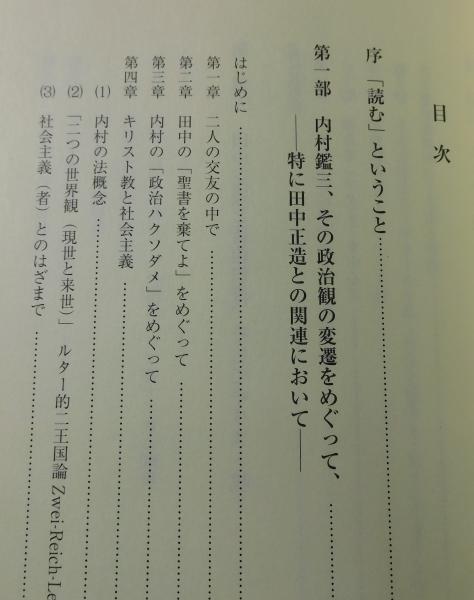 目次
序 「読む」ということ
第一部 内村鑑三、その政治観の変遷をめぐって、
――特に田中正造との関連において――
はじめに
第一章 二人の交友の中で
第二章 田中の「聖書を棄てよ」をめぐって
第三章 内村の「政治ハクソダメ」をめぐって
第四章 キリスト教と社会主義
(1) 内村の法概念
(2) 「二つの世界観（現世と来世）」 ルター的二王国論 Zwei-Reich-Le
(3) 社会主義（者）とのはざまで